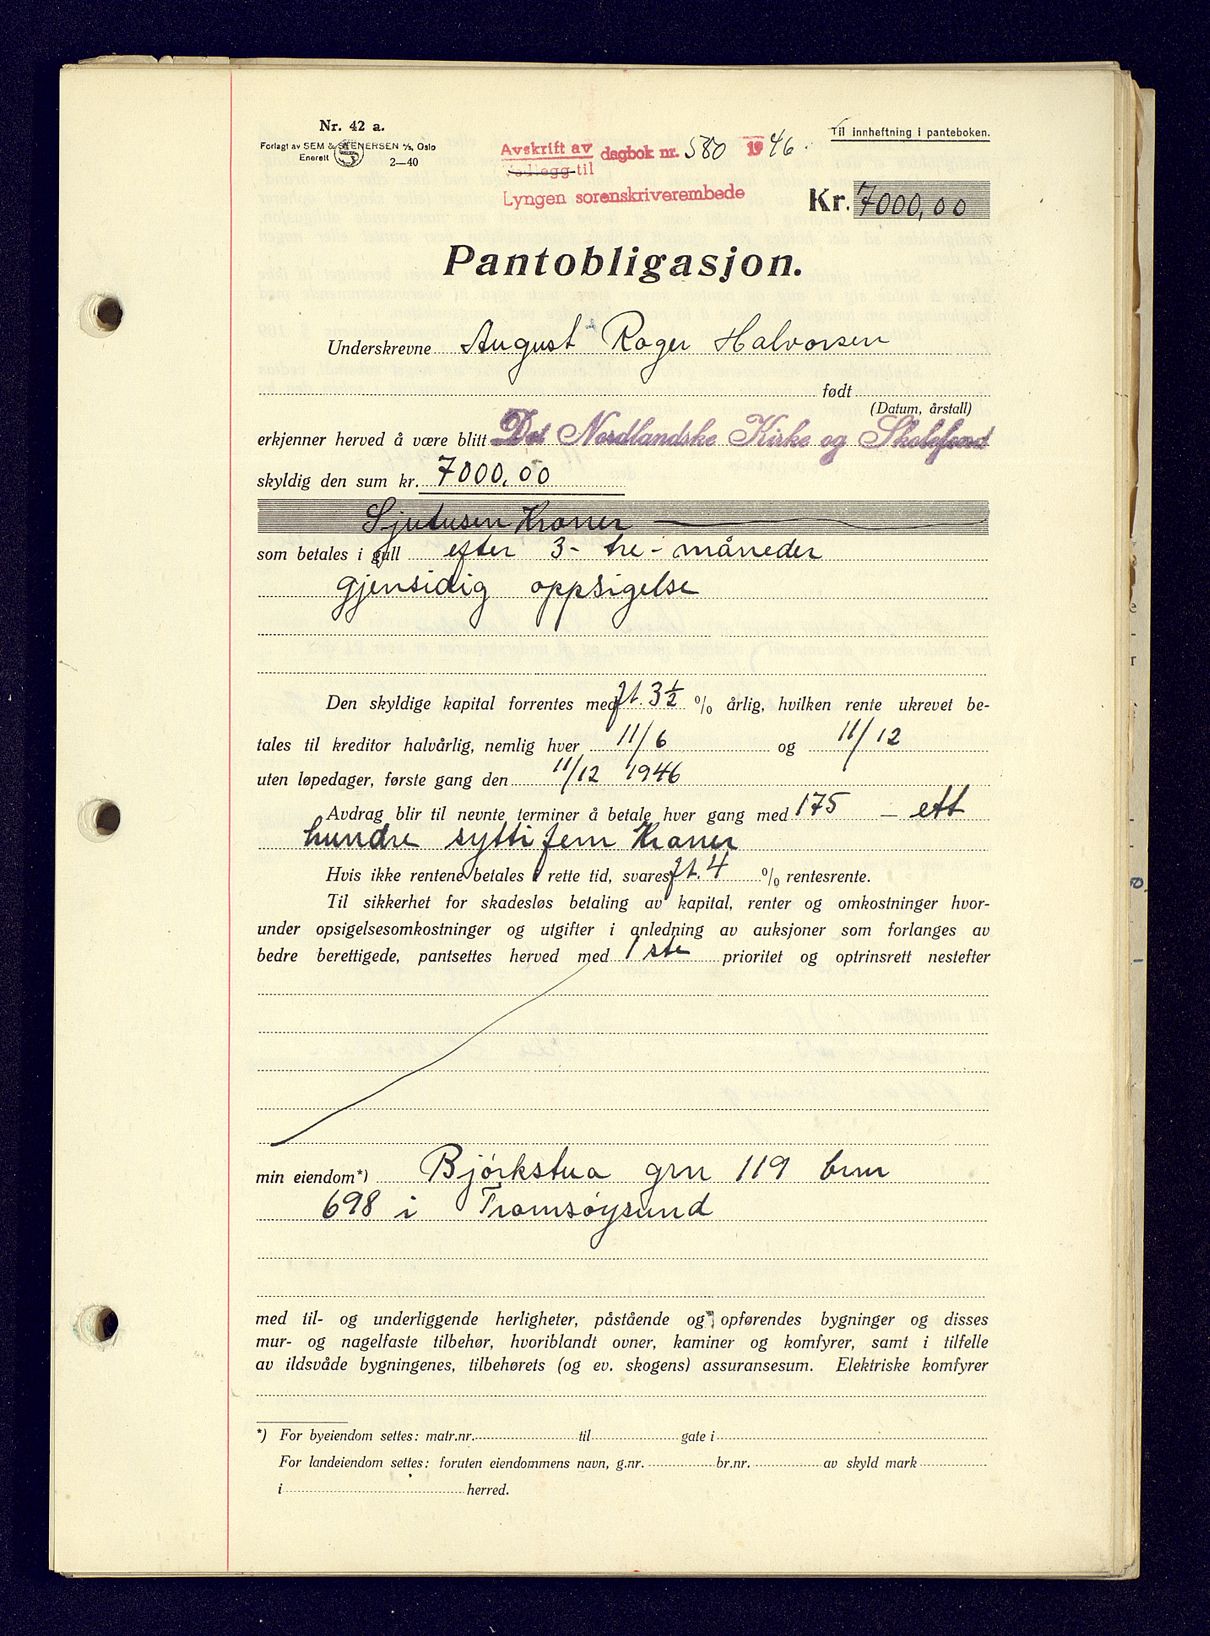 Nr. 42 a.
Forlagt av SEM & STENERSEN A/S, Oslo
Enerett 2—40
Avskrift av
Vedlegg til
dagbok nr. 580 1946.
Lyngen sorenskriverembede
Til innheftning i panteboken.
Kr. 7000,00
Pantobligasjon.
Underskrevne August Roger Halvorsen
født
(Datum, årstall)
erkjenner herved å være blitt Det Nordlandske Kirke og Skolefond
skyldig den sum kr. 7000,00
Sjutusen Kroner
som betales i gull efter 3- tre- måneder
gjensidig oppsigelse
Den skyldige kapital forrentes med ft. 3½ % årlig, hvilken rente ukrevet be-
tales til kreditor halvårlig, nemlig hver 11/6 og 11/12
uten løpedager, første gang den 11/12 1946
Avdrag blir til nevnte terminer å betale hver gang med 175 — ett
hundre sytti fem Kroner
Hvis ikke rentene betales i rette tid, svares ft. 4 % rentesrente.
Til sikkerhet for skadesløs betaling av kapital, renter og omkostninger hvor-
under opsigelsesomkostninger og utgifter i anledning av auksjoner som forlanges av
bedre berettigede, pantsettes herved med 1ste prioritet og optrinsrett nestefter
min eiendom*) Bjørkstua grn 119 brnr
698 i Tromsøysund
med til- og underliggende herligheter, påstående og opførendes bygninger og disses
mur- og nagelfaste tilbehør, hvoriblandt ovner, kaminer og komfyrer, samt i tilfelle
av ildsvåde bygningenes, tilbehørets (og ev. skogens) assuransesum. Elektriske komfyrer
*) For byeiendom settes: matr.nr. til gate i
For landeiendom settes: foruten eiendommens navn, g.nr. br.nr. av skyld mark
i herred.